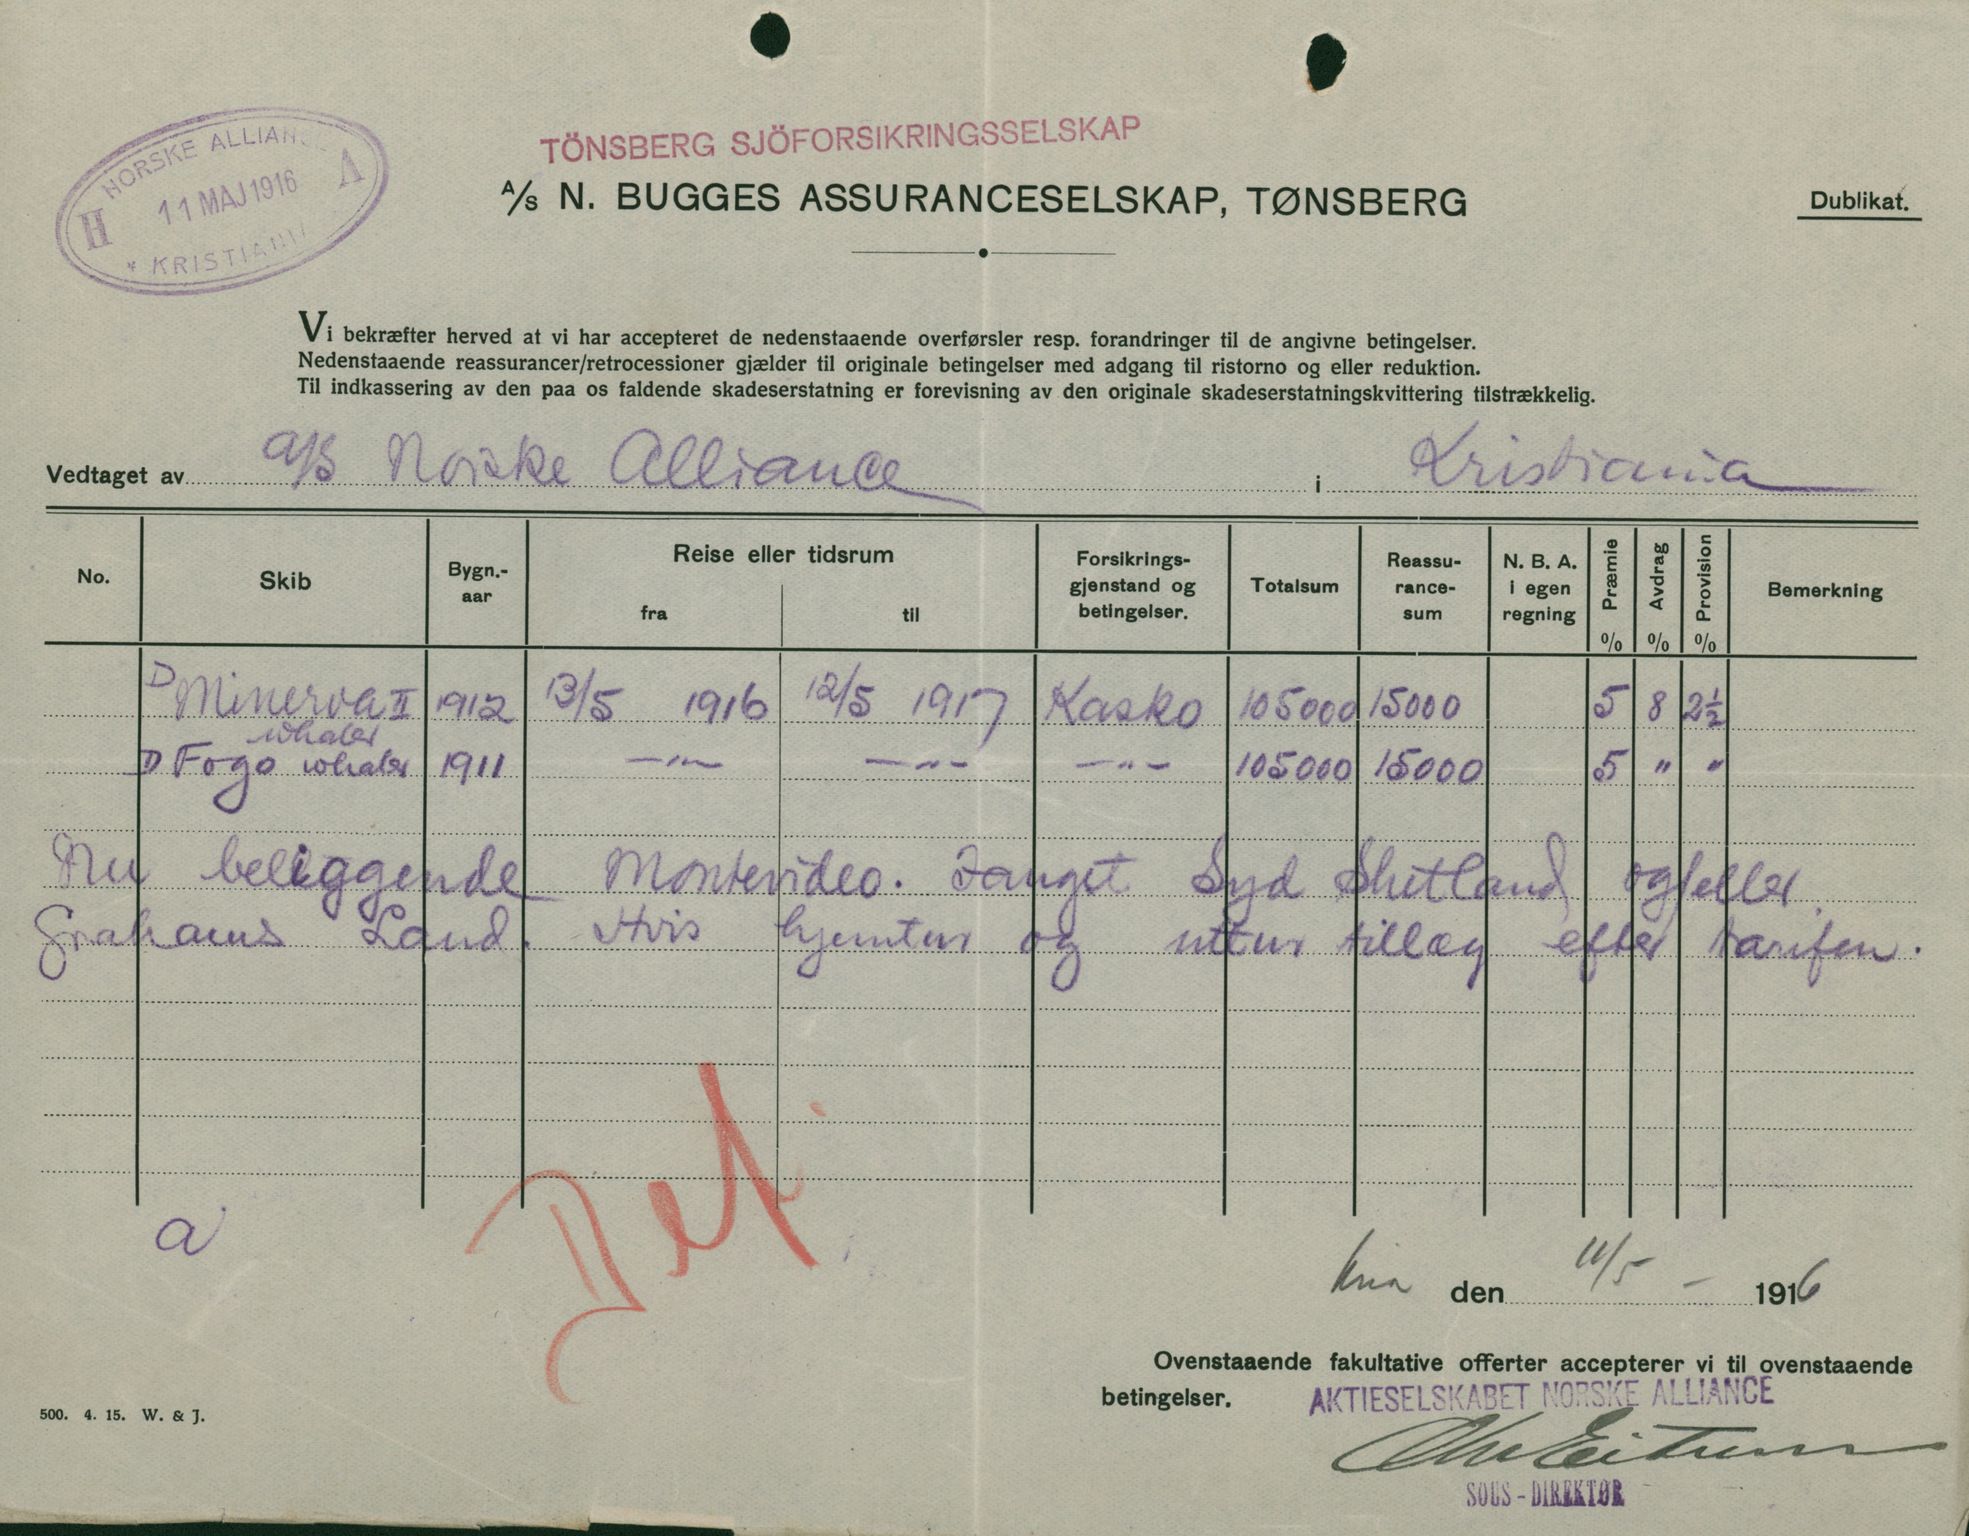 NORSKE ALLIANCE
H 11 MAJ 1916 A
* KRISTIANIA
TÖNSBERG SJÖFORSIKRINGSSELSKAP
A/S N. BUGGES ASSURANCESELSKAP, TØNSBERG
Dublikat.
Vi bekræfter herved at vi har accepteret de nedenstaaende overførsler resp. forandringer til de angivne betingelser.
Nedenstaaende reassurancer/retrocessioner gjælder til originale betingelser med adgang til ristorno og eller reduktion.
Til indkassering av den paa os faldende skadeserstatning er forevisning av den originale skadeserstatningskvittering tilstrækkelig.
Vedtaget av A/S Norske Alliance i Kristiania
No. Skib Bygn.-aar Reise eller tidsrum fra til Forsikrings-gjenstand og betingelser. Totalsum Reassu-rance-sum N. B. A. i egen regning Præmie % Avdrag % Provision % Bemerkning
D Minerva II 1912 13/5 1916 12/5 1917 Kasko 105000 15000 5 8 2½
whaler
D Fogo whaler 1911 —"— —"— —"— 105000 15000 5 " "
Nu beliggende Montevideo. Fanget Syd Shetland og/eller
Grahams Land. Hvis hjemtur og uttur tillæg efter tarifen.
a
Kria den 11/5 - 1916
Ovenstaaende fakultative offerter accepterer vi til ovenstaaende
betingelser. AKTIESELSKABET NORSKE ALLIANCE
SOUS-DIREKTØR
500. 4. 15. W. & J.